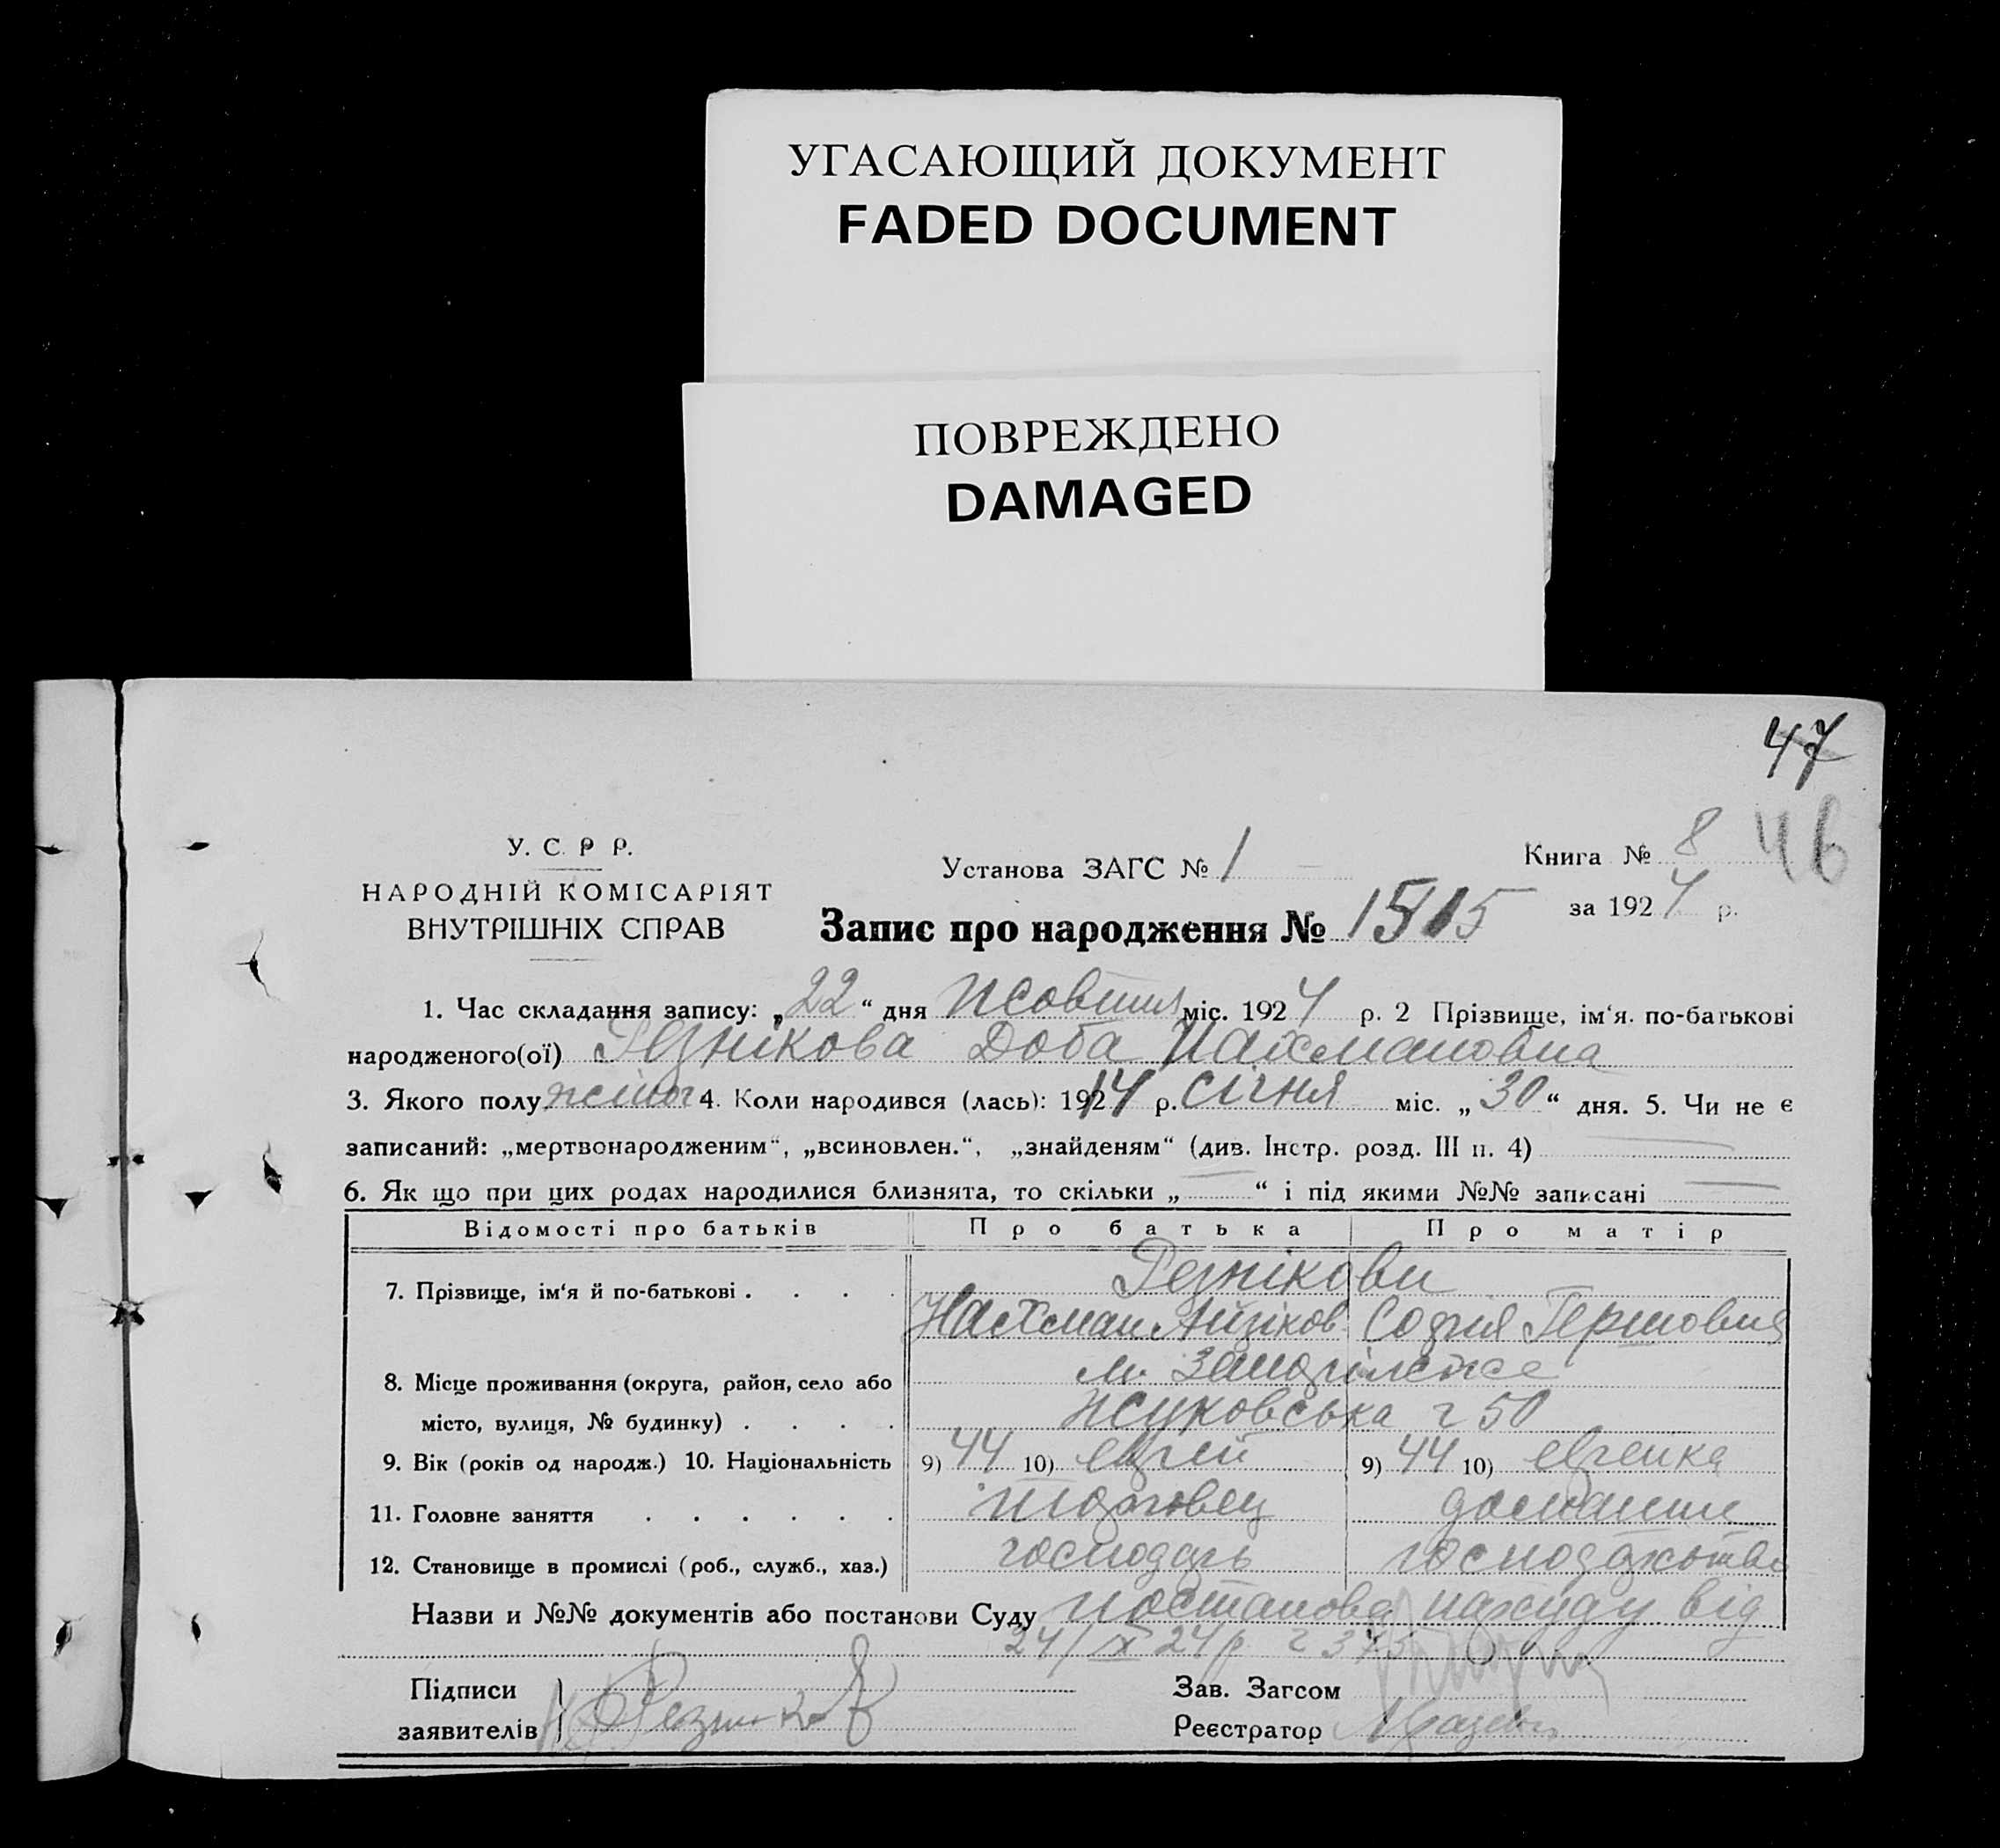 УГАСАЮЩИЙ ДОКУМЕНТ
FADED DOCUMENT
ПОВРЕЖДЕНО
DAMAGED
47
46
У. С. Р Р.
НАРОДНІЙ КОМІСАРІЯТ
ВНУТРІШНІХ СПРАВ
Установа ЗАГС № 1
Книга № 8
за 1924 р.
Запис про народження № 1515
1. Час складання запису: „22“ дня Жовтня міс. 1924 р. 2 Прізвище, ім‘я. по-батькові
народженого(ої) Резнікова Доба Нахмановна
3. Якого полу жіноч 4. Коли народився (лась): 1914 р. січня міс. „30“ дня. 5. Чи не є
записаний: „мертвонародженим“, „всиновлен.“, „знайденям“ (див. Інстр. розд. III п. 4)
6. Як що при цих родах народилися близнята, то скільки „ “ і під якими №№ записані
Відомості про батьків Про батька Про матір
7. Прізвище, ім‘я й по-батькові . . . . Резнікови
Нахман Айзіков Софія Гершовна
8. Місце проживання (округа, район, село або м. Запоріжже
місто, вулиця, № будинку) . . . . Жуковська ч 50
9. Вік (років од народж.) 10. Національність 9) 44 10) еврей 9) 44 10) еврейка
11. Головне заняття . . . . . . торговец домашнє
12. Становище в промислі (роб., служб., хаз.) господарь господарство
Назви и №№ документів або постанови Суду постанова нарсуду від
24/IX 24р. ч 373
Підписи
заявителів Резников
Зав. Загсом
Реєстратор